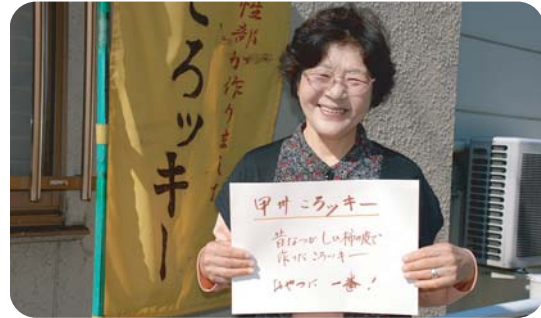 性部が作りました
ころッキー
甲州 ころッキー
昔なつかしい柿の皮で
作った ころッキー
おやつに 一番!